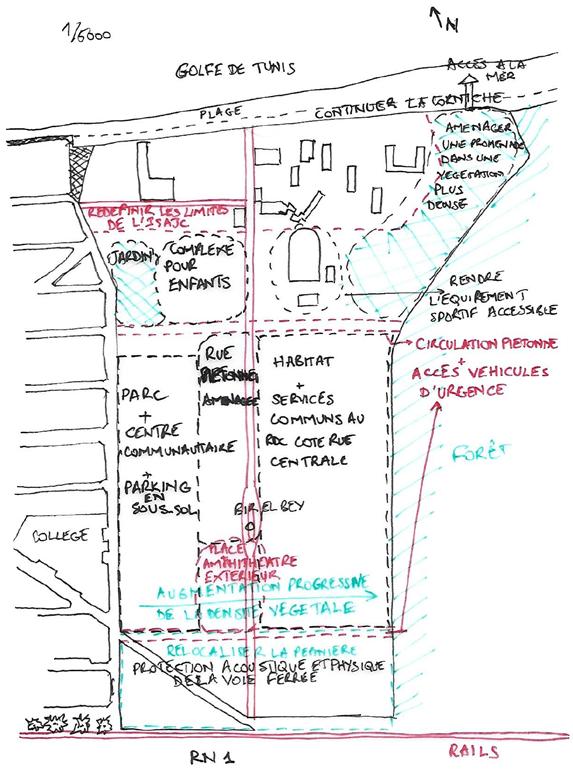 1/5000
N
GOLFE DE TUNIS
ACCÈS A LA
MER
PLAGE
CONTINUER LA CORNICHE
AMENAGER
UNE PROMENADE
DANS UNE
VEGETATION
PLUS
DENSE
REDEFINIR LES LIMITES
DE L'ISAJC
JARDIN
COMPLEXE
POUR
ENFANTS
RENDRE
L'EQUIPEMENT
SPORTIF ACCESSIBLE
CIRCULATION PIETONNE
+
ACCÈS VEHICULES
D'URGENCE
RUE
PIETONNE
AMENAGEE
HABITAT
+
SERVICES
COMMUNS AU
RDC COTE RUE
CENTRALE
PARC
+
CENTRE
COMMUNAUTAIRE
+
PARKING
EN
SOUS-SOL
FORÊT
BIR EL BEY
COLLEGE
PLACE
AMPHITHEATRE
EXTERIEUR
AUGMENTATION PROGRESSIVE
DE LA DENSITE VEGETALE
RELOCALISER LA PEPINIERE
PROTECTION ACOUSTIQUE ET PHYSIQUE
DE LA VOIE FERREE
RN1
RAILS